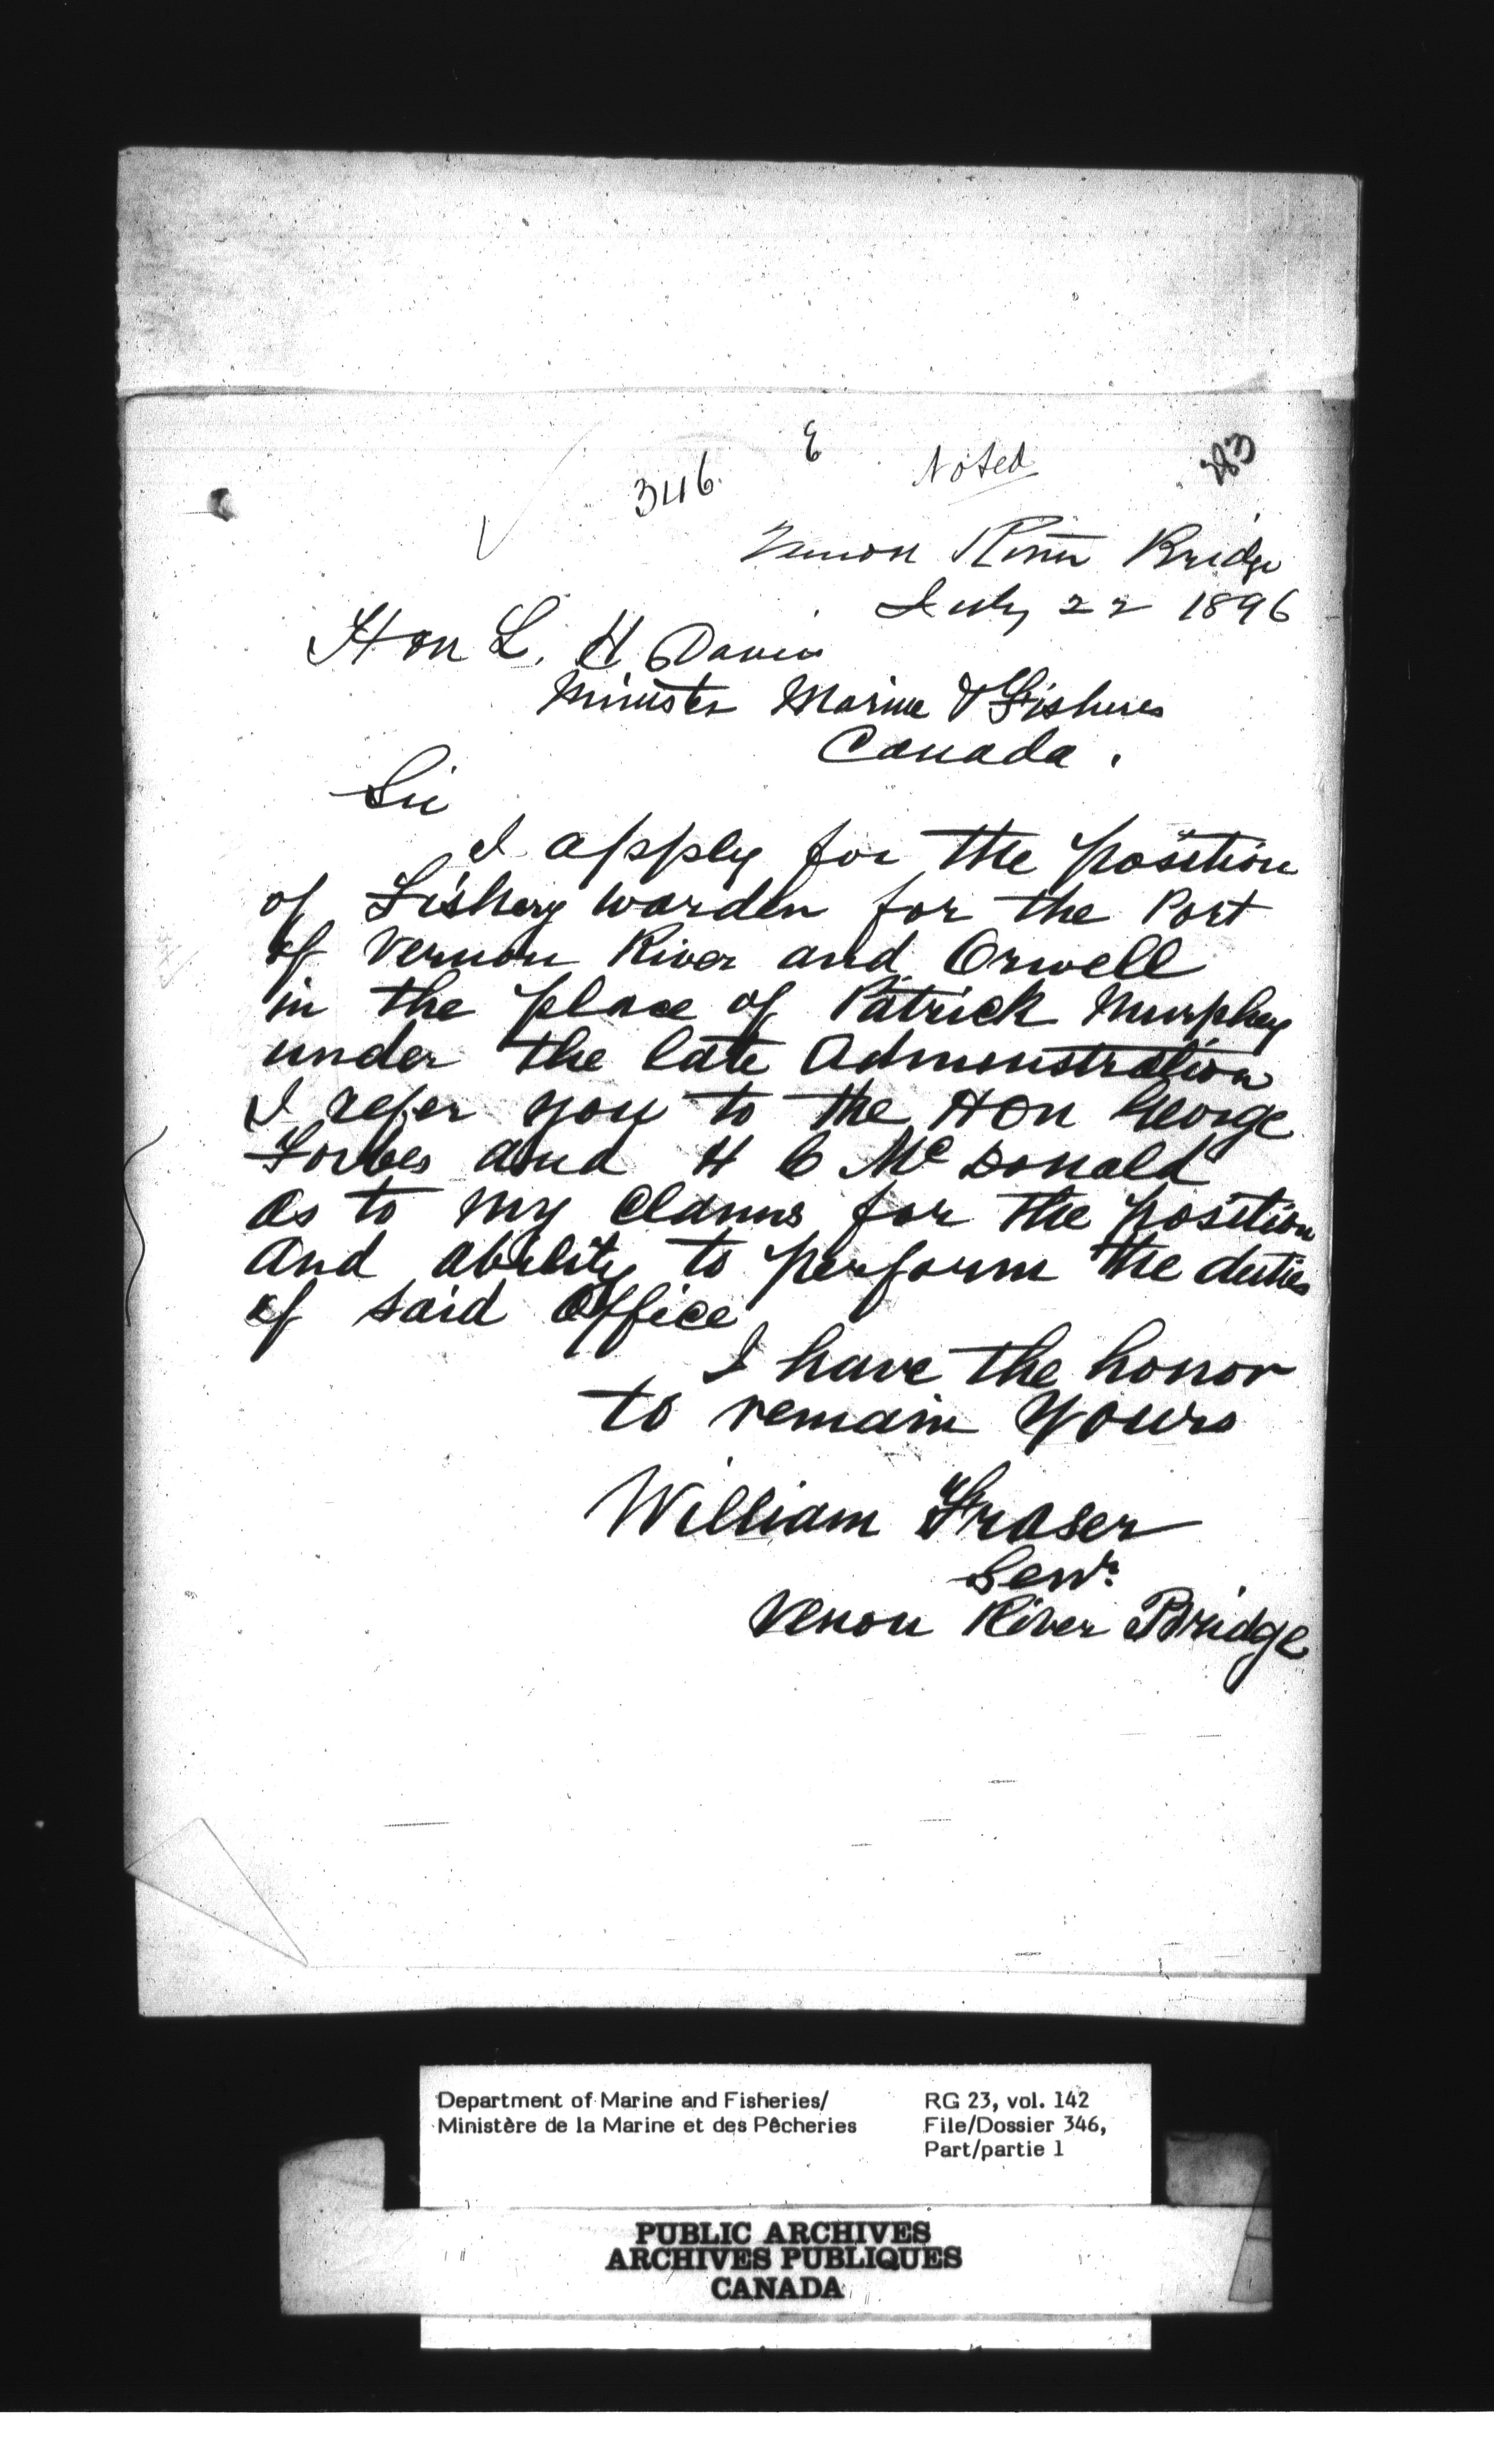 346. E Noted 283
Vernon River Bridge
July 22 1896
Hon L. H Davies
Minister Marine & Fisheries
Canada.
Sir
I apply for the position
of Fishery warden for the Port
of Vernon River and Orwell
in the place of Patrick Murphy
under the late Admonistration
I refer you to the Hon George
Forbes and H C Mc Donald
as to my Claims for the position
and ability to perform the duties
of said Office
I have the honor
to remain Yours
William Fraser
Senr.
Venon River Bridge
Department of Marine and Fisheries/ RG 23, vol. 142
Ministère de la Marine et des Pêcheries File/Dossier 346,
Part/partie 1
PUBLIC ARCHIVES
ARCHIVES PUBLIQUES
CANADA